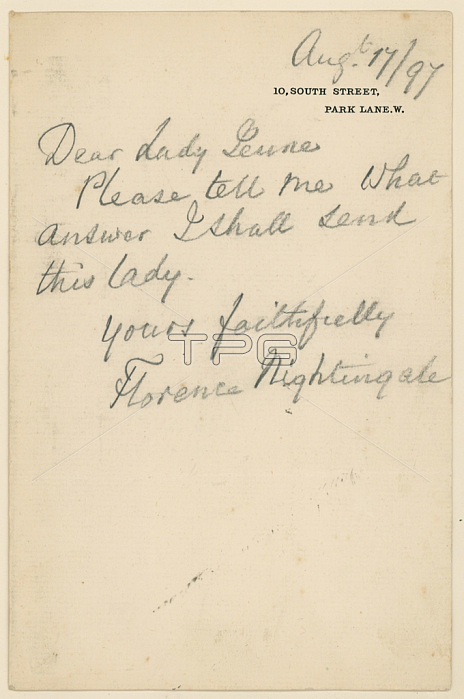 Augt. 17/97
10, SOUTH STREET,
PARK LANE. W.
Dear Lady Jeune
Please tell me what
answer I shall send
this lady.
Yours faithfully
TPG
Florence Nightingale